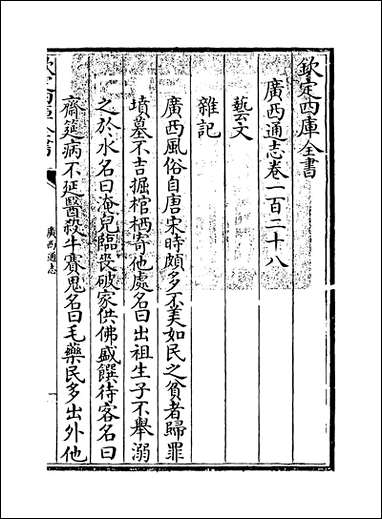 欽定四庫全書
廣西通志卷一百二十八
藝文
雜記
廣西風俗自唐宋時頗多不美如民之貧者歸罪
墳墓不吉掘棺栖寄他處名曰出祖生子不舉溺
之於水名曰淹兒臨喪破家供佛盛饌待客名曰
齋筵病不延醫殺牛賽鬼名曰毛藥民多出外他
廣西通志
一